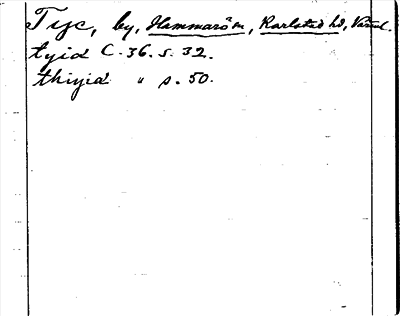 Tye, by, Hammarö sn, Karlstad hd, Värml.
tyid C. 36. s. 32.
thiyid " s. 50.